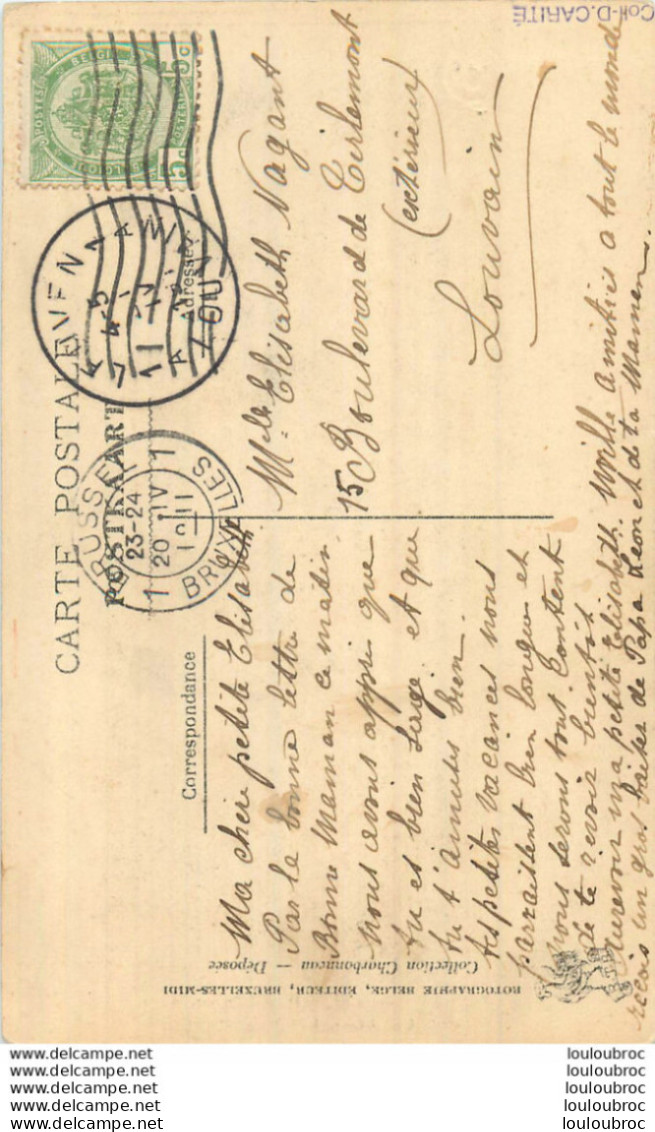 CARTE POSTALE
POSTKAART
Correspondance
Adresse
Ma chère petite Elisabeth
Par la bonne lettre de
Bonne Maman ce matin
nous avons appris que
tu es bien sage et que
tu t'amuses bien.
tes petites vacances nous
parraissent bien longues et
nous serons tout content
de te revoir bientôt
Aurevoir ma petite Elisabeth. Mille amitiés a tout le monde
reçois un gros baiser de Papa Leon et de ta Maman.
Melle Elisabeth Nagant
15 Boulevard de Tirlemont
(extérieur)
Louvain
BRUSSEL
23-24
20 IV
1911
BRUXELLES
1 1
LEUVEN
LOUVAIN
POSTES BELGIQUE
5c
Coll-D.CARITÉ
ROTOGRAPHIE BELGE, ÉDITEUR, BRUXELLES-MIDI
Collection Charbonneau — Déposée
www.delcampe.net louloubroc
www.delcampe.net louloubroc
www.delcampe.net louloubroc
www.delcampe.net louloubroc
www.delcampe.net louloubroc